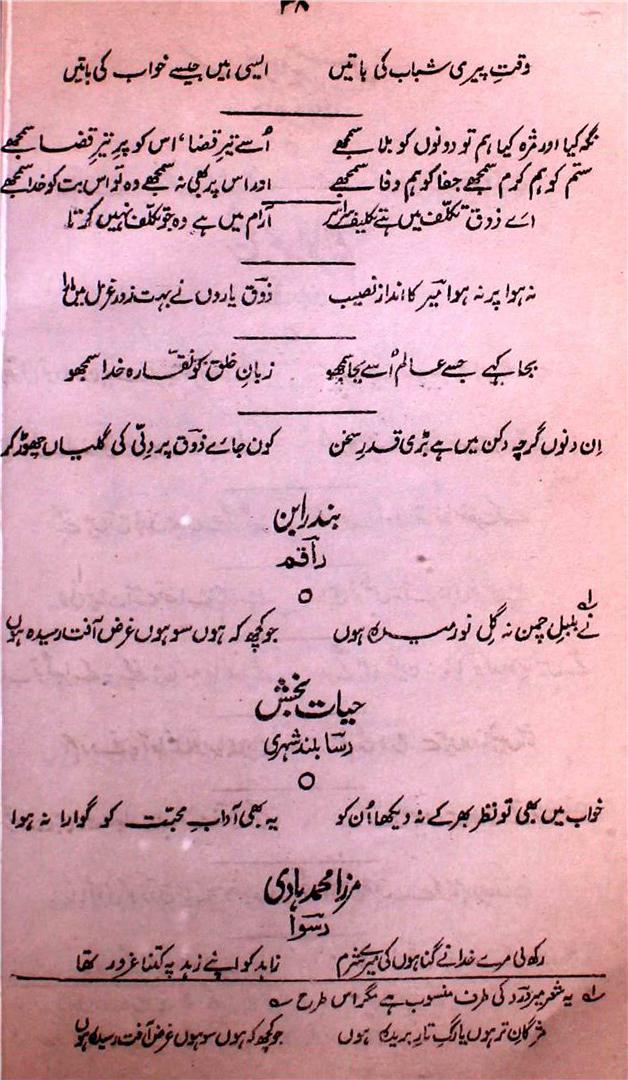 ۳۸
وقتِ پیری شباب کی باتیں ایسی ہیں جیسے خواب کی باتیں
نگہ کیا اور مژہ کیا ہم تو دونوں کو بلا سمجھے اُسے تیرِ قضا، اس کو پرِ تیرِ قضا سمجھے
ستم کو ہم کرم سمجھے جفا کو ہم وفا سمجھے اور اس پر بھی نہ سمجھے وہ تو اس بت کو خدا سمجھے
اے ذوق تکلّف میں ہے تکلیف سراسر آرام میں ہے وہ جو تکلّف نہیں کرتا
نہ ہوا پر نہ ہوا میر کا انداز نصیب ذوق یاروں نے بہت زور غزل میں مارا
بجا کہے جسے عالم اُسے بجا سمجھو زبانِ خلق کو نقّارہ خدا سمجھو
اِن دنوں گرچہ دکن میں ہے بڑی قدرِ سخن کون جائے ذوق پر دلّی کی گلیاں چھوڑ کر
بندرابن
راقم
○
نے بلبلِ چمن نہ گلِ نو دمیدہ ہوں جو کچھ کہ ہوں سو ہوں غرض آفت رسیدہ ہوں ؎۱
حیات بخش
رسا بلند شہری
○
خواب میں بھی تو نظر بھر کے نہ دیکھا اُن کو یہ بھی آدابِ محبّت کو گوارا نہ ہوا
مرزا محمد ہادی
رسوا
رکھ لی مرے خدا نے گناہوں کی میرے شرم زاہد کو اپنے زہد پہ کتنا غرور تھا
؎۱ یہ شعر میر درد کی طرف منسوب ہے مگر اس طرح ؎
مژگانِ تر ہوں یا رگِ تاکِ بریدہ ہوں جو کچھ کہ ہوں سو ہوں غرض آفت رسیدہ ہوں